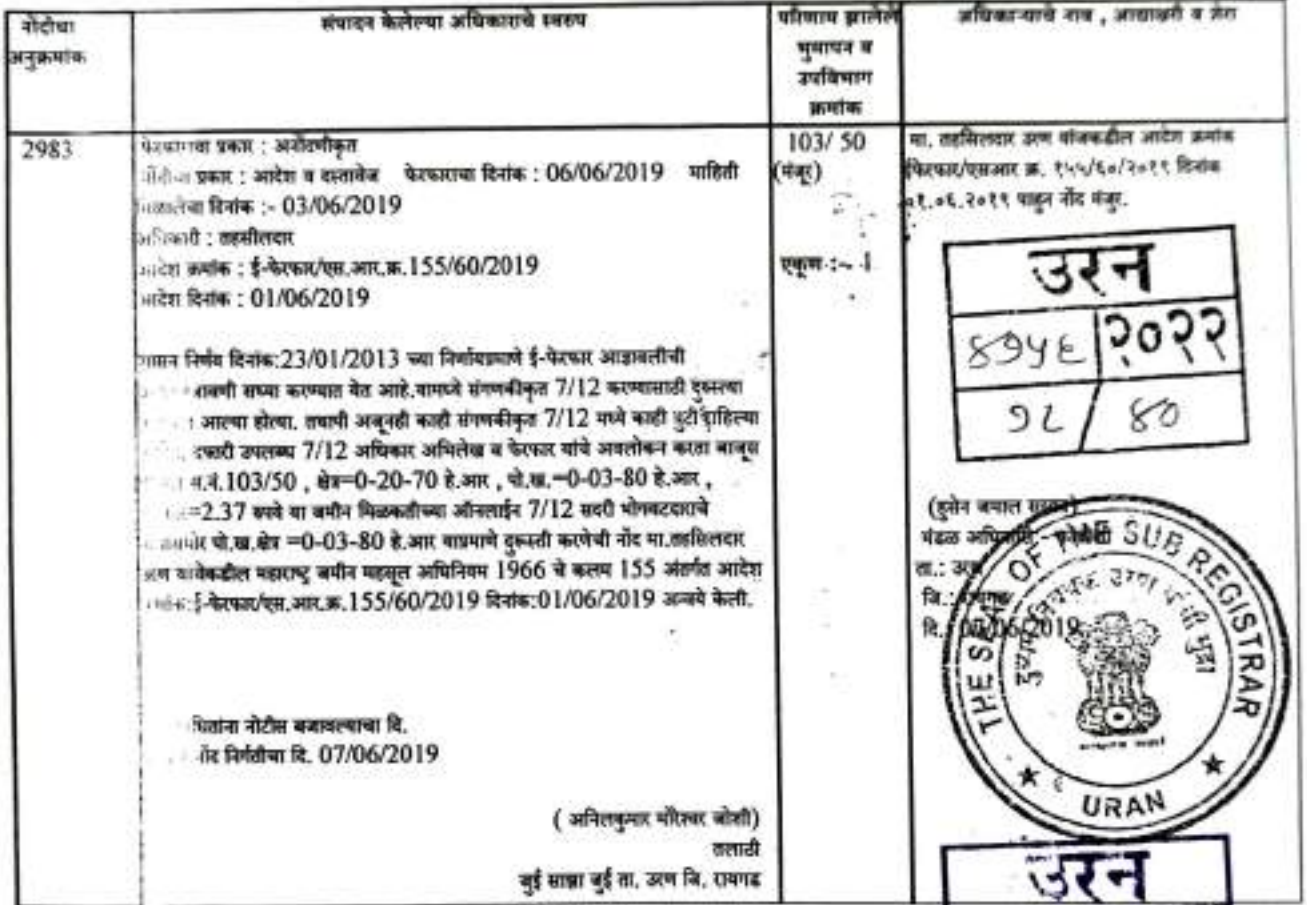 नोंदीचा
अनुक्रमांक
संपादन केलेल्या अधिकाराचे स्वरुप
परिणाम झालेले
भुमापन व
उपविभाग
क्रमांक
अधिकाऱ्याचे नाव , आद्याक्षरी व शेरा
2983
फेरफाराचा प्रकार : अनोंदणीकृत
प्रकार : आदेश व दस्तावेज फेरफाराचा दिनांक : 06/06/2019 माहिती
मिळालेचा दिनांक :- 03/06/2019
अधिकारी : तहसीलदार
आदेश क्रमांक : ई-फेरफार/एस.आर.क्र.155/60/2019
आदेश दिनांक : 01/06/2019
शासन निर्णय दिनांक:23/01/2013 च्या निर्णयाप्रमाणे ई-फेरफार आज्ञावलीची
सध्या करण्यात येत आहे.यामध्ये संगणकीकृत 7/12 करण्यासाठी दुरुस्त्या
आल्या होत्या. तथापी अजूनही काही संगणकीकृत 7/12 मध्ये काही त्रुटी राहिल्या
दफ्तरी उपलब्ध 7/12 अधिकार अभिलेख व फेरफार यांचे अवलोकन करता बाजूस
स.नं.103/50 , क्षेत्र=0-20-70 हे.आर , पो.ख.=0-03-80 हे.आर ,
=2.37 रुपये या जमीन मिळकतीच्या ऑनलाईन 7/12 सदरी भोगवटदाराचे
पो.ख.क्षेत्र =0-03-80 हे.आर याप्रमाणे दुरुस्ती करणेची नोंद मा.तहसिलदार
उरण यांचेकडील महाराष्ट्र जमीन महसूल अधिनियम 1966 चे कलम 155 अंतर्गत आदेश
क्रमांक:ई-फेरफार/एस.आर.क्र.155/60/2019 दिनांक:01/06/2019 अन्वये केली.
नोटीस बजावल्याचा दि.
नोंद निर्गतीचा दि. 07/06/2019
( अनिलकुमार मोरेश्वर जोशी)
तलाठी
जुई साझा जुई ता. उरण जि. रायगड
103/ 50
(मंजूर)
एकूण :- 1
मा. तहसिलदार उरण यांजकडील आदेश क्रमांक
फेरफार/एसआर क्र. १५५/६०/२०१९ दिनांक
०१.०६.२०१९ पाहून नोंद मंजुर.
उरन
४७५६ २०२२
१८ / ४०
(हुसेन जमाल
मंडळ
ता.: उरण
जि.: रायगड
दि.: 07/06/2019
THE SEAL OF THE SUB REGISTRAR
URAN
उरन